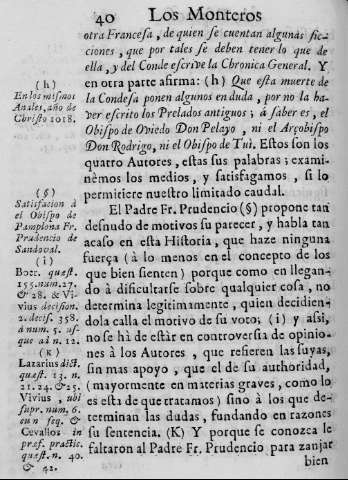 40 Los Monteros
otra Francesa, de quien se cuentan algunas fic-
ciones, que por tales se deben tener lo que de
ella, y del Conde escrive la Chronica General. Y
en otra parte afirma: (h) Que esta muerte de
la Condesa ponen algunos en duda, por no la ha-
ver escrito los Prelados antiguos; à saber es, el
Obispo de Oviedo Don Pelayo, ni el Arçobispo
Don Rodrigo, ni el Obispo de Tui. Estos son los
quatro Autores, estas sus palabras; exami-
nèmos los medios, y satisfagamos, si lo
permitiere nuestro limitado caudal.
El Padre Fr. Prudencio (§) propone tan
desnudo de motivos su parecer, y habla tan
acaso en esta Historia, que haze ninguna
fuerça (à lo menos en el concepto de los
que bien sienten) porque como en llegan-
do à dificultarse sobre qualquier cosa, no
determina legitimamente, quien decidien-
dola calla el motivo de su voto; (i) y assi,
no se hà de estàr en controversia de opinio-
nes à los Autores, que refieren las suyas,
sin mas apoyo, que el de su authoridad,
(mayormente en materias graves, como lo
es esta de que tratamos) sino à los que de-
terminan las dudas, fundando en razones
su sentencia. (K) Y porque se conozca le
faltaron al Padre Fr. Prudencio para zanjar
bien
(h)
En los mismos
Anales, año de
Christo 1018.
(§)
Satisfacion à
el Obispo de
Pamplona Fr.
Prudencio de
Sandoval.
(i)
Boer. quæst.
155. num. 27.
& 28. & Vi-
vius decision.
2. decis. 358.
à num. 5. us-
que ad n. 12.
(K)
Lazarius dict.
quæst. 13. n.
21. 24. & 25.
Vivius, ubi
supr. num. 6.
cum seq. &
Cevallos in
præf. practic.
quæst. n. 40.
& 42.